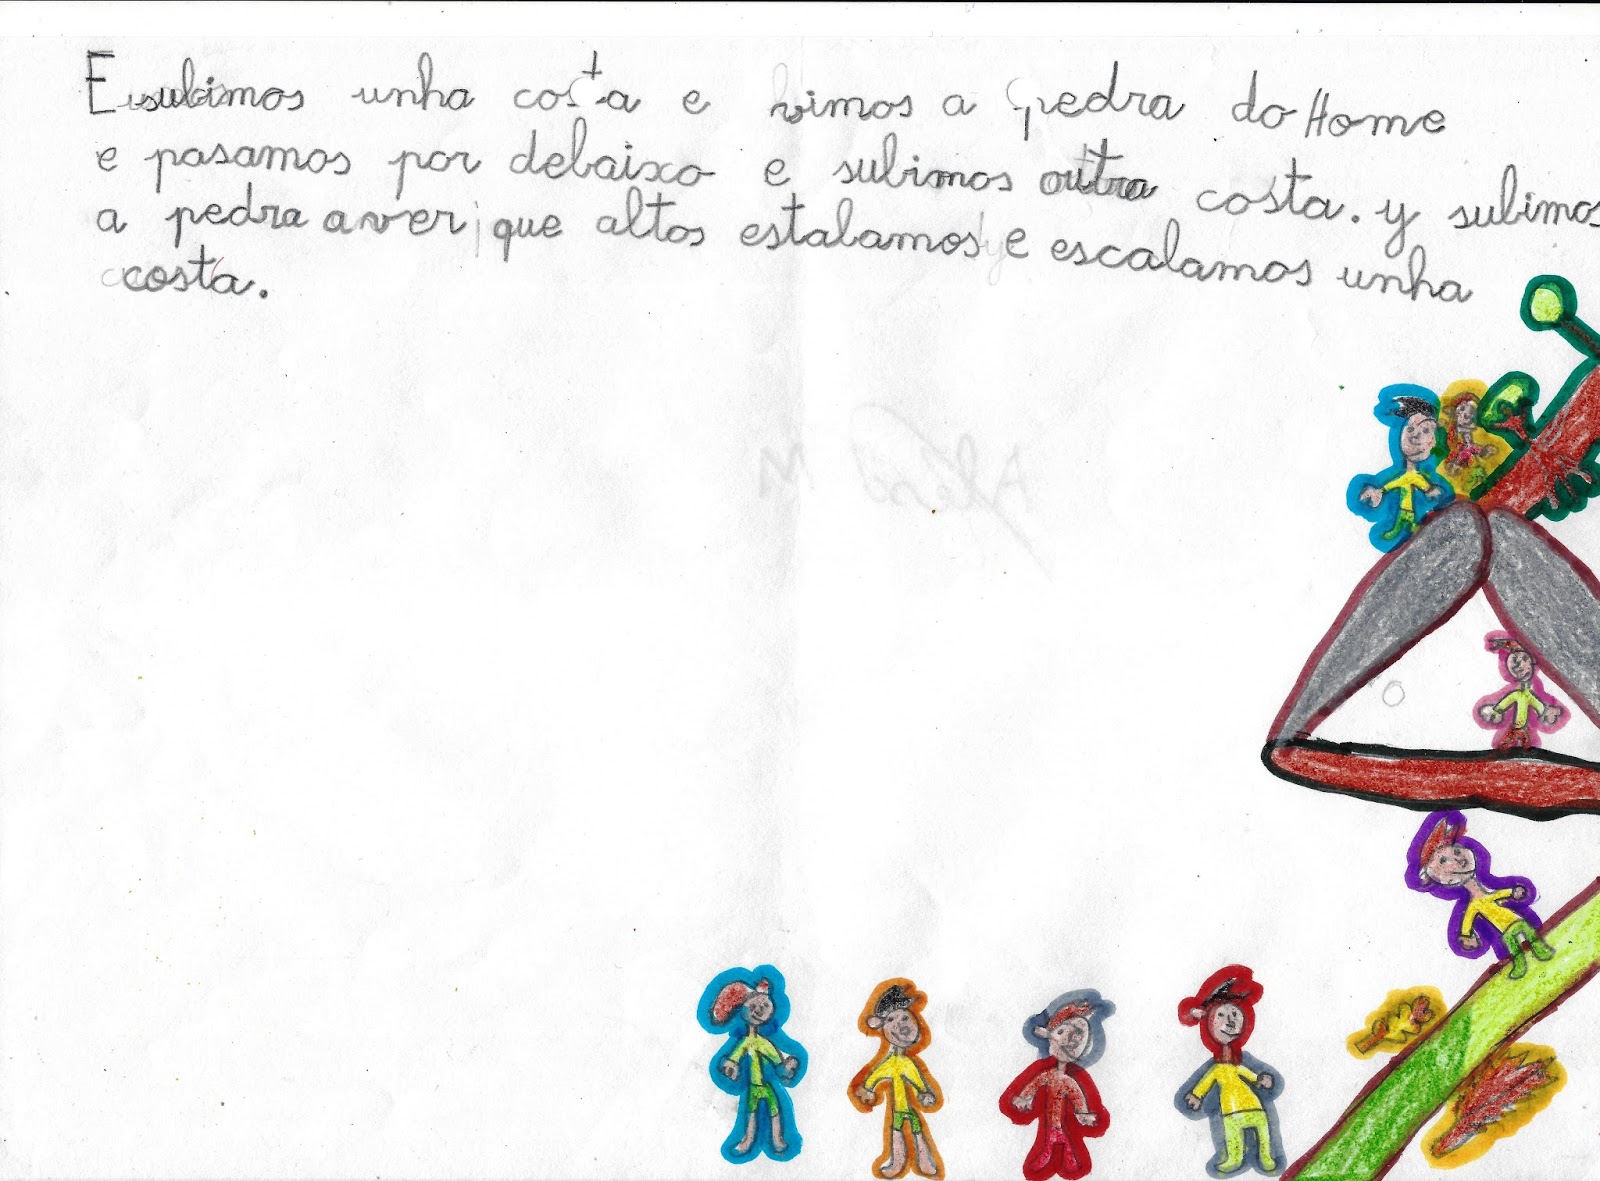 E subimos unha costa e vimos a pedra do Home
e pasamos por debaixo e subimos outra costa. y subimos
a pedra a ver que altos estalamos e escalamos unha
costa.